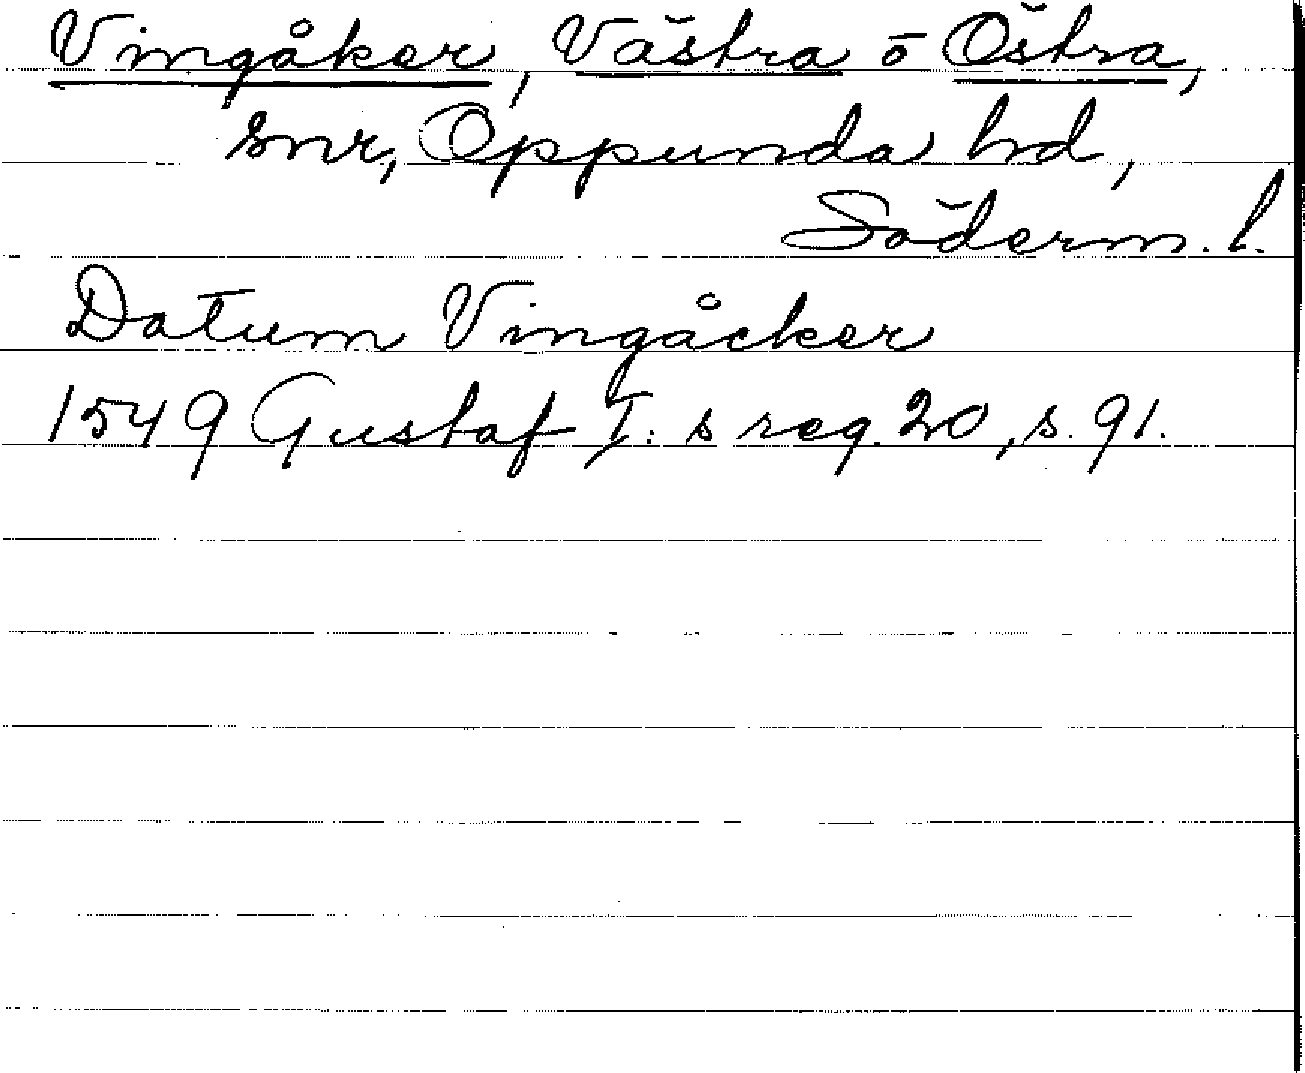 Vingåker, Västra o Östra,
snr, Oppunda hd,
Söderm. l.
Datum Vingåcker
1549 Gustaf I: s reg. 20, s. 91.